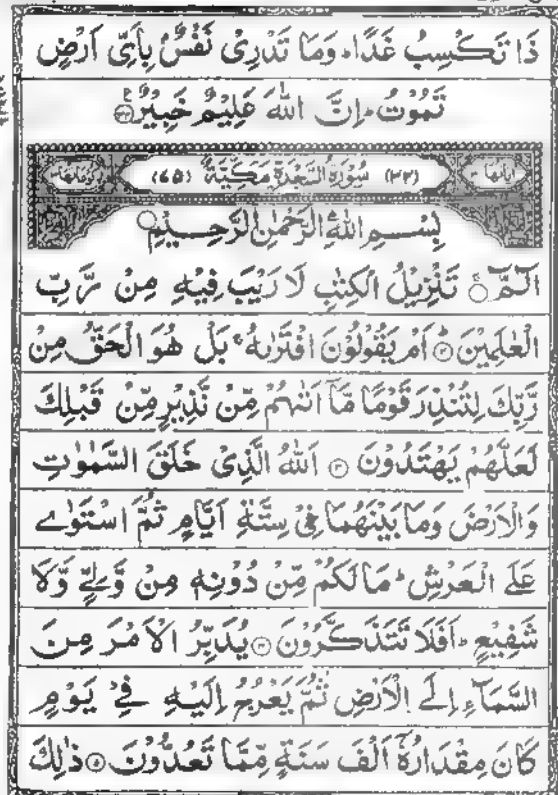 ذَا تَكْسِبُ غَدًا ؕ وَمَا تَدْرِىْ نَفْسٌۢ بِاَىِّ اَرْضٍ
تَمُوْتُ ؕ اِنَّ اللّٰهَ عَلِيْمٌ خَبِيْرٌ
اٰيَاتُهَا ٣٠ (٣٢) سُوْرَةُ السَّجْدَةِ مَكِّيَّةٌ (٧٥) رُكُوْعَاتُهَا ٣
بِسْمِ اللّٰهِ الرَّحْمٰنِ الرَّحِيْمِ
الٓمّٓ ۚ تَنْزِيْلُ الْكِتٰبِ لَا رَيْبَ فِيْهِ مِنْ رَّبِّ
الْعٰلَمِيْنَ ؕ ٢ اَمْ يَقُوْلُوْنَ افْتَرٰىهُ ۚ بَلْ هُوَ الْحَقُّ مِنْ
رَّبِّكَ لِتُنْذِرَ قَوْمًا مَّآ اَتٰىهُمْ مِّنْ نَّذِيْرٍ مِّنْ قَبْلِكَ
لَعَلَّهُمْ يَهْتَدُوْنَ ٣ اَللّٰهُ الَّذِىْ خَلَقَ السَّمٰوٰتِ
وَالْاَرْضَ وَمَا بَيْنَهُمَا فِىْ سِتَّةِ اَيَّامٍ ثُمَّ اسْتَوٰى
عَلَى الْعَرْشِ ؕ مَا لَكُمْ مِّنْ دُوْنِهٖ مِنْ وَّلِىٍّ وَّلَا
شَفِيْعٍ ؕ اَفَلَا تَتَذَكَّرُوْنَ ٤ يُدَبِّرُ الْاَمْرَ مِنَ
السَّمَآءِ اِلَى الْاَرْضِ ثُمَّ يَعْرُجُ اِلَيْهِ فِىْ يَوْمٍ
كَانَ مِقْدَارُهٗٓ اَلْفَ سَنَةٍ مِّمَّا تَعُدُّوْنَ ٥ ذٰلِكَ